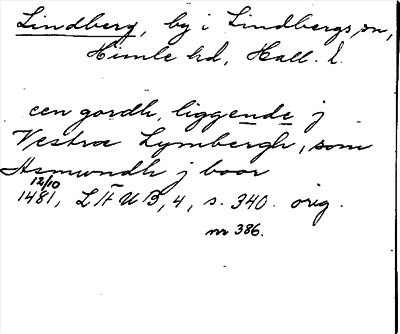 Lindberg, by i Lindbergs sn,
Himle hd, Hall. l.
een gordh, liggende j
Vestra Lymbergh, som
Asmundh j boor
12/10
1481, LHUB, 4, s. 340. orig.
nr 386.